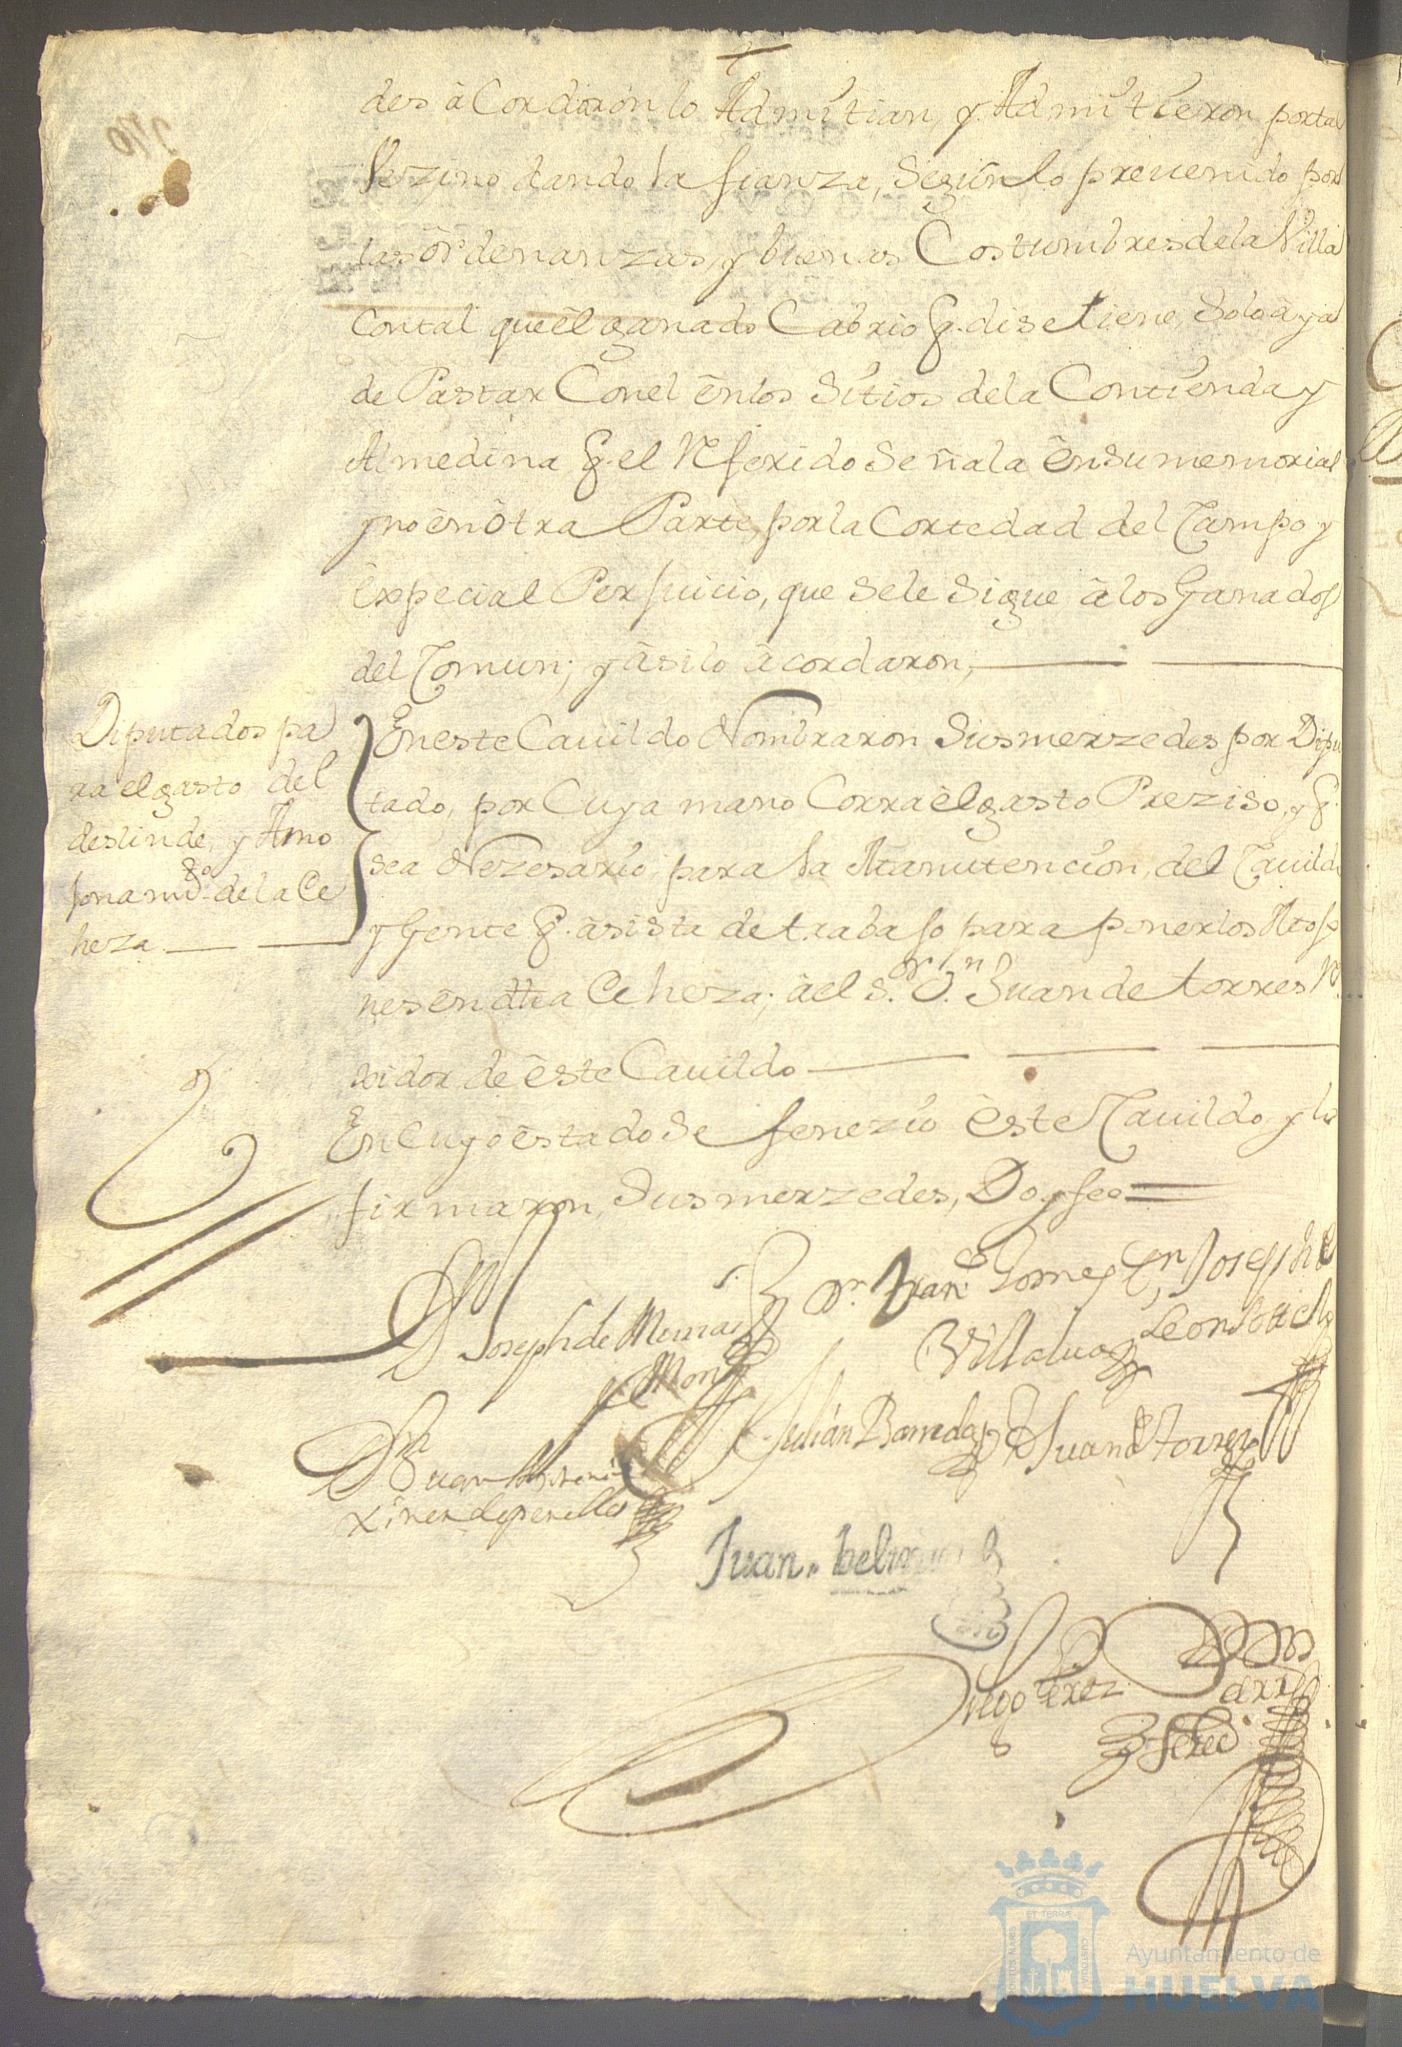 des àCordaron lo Admitian, y Admitieron portal
Vezino dando la fianza, Segun lo preuenido por
las ordenanzas, y buenas Costumbres de la Villa
Contal que èl ganado Cabrio q. dise tiene, Solo à ya
de Pastar Conel ènlos Sitios dela Contienda y
Almedina q. el Referido Señala ènsu memorial
y no ènòtra Parte, porla Cortedad del Campo y
èxpecial Perjuicio, que sele Sigue à los Ganados
del Comun; y àsilo àcordaron,
Diputados pa
ra el gasto del
deslinde, y Amo
jonamto. de la De
heza
En este Cauildo Nombraron Susmerzedes por Dipu
tado, por Cuya mano Corra èl gasto Preziso, y q.
sea Nezesario para la Manutencion, del Cauildo
y Gente q. àsista de trabajo para poner los Mojo
nes èn dha Deheza; àel Sr. Dn. Juan de torres Re
xidor de èste Cauildo
En Cuyo èstado Se fenezio èste Cauildo, y lo
firmaron, Susmerzedes, Doy fee =
Joseph de
Dn. Franco. Gomez
Villalua
Dn. Joseph
Leon
Dn. Juan
Julian Barreda
Juan de torres
Juan
Diego Perez
Ayuntamiento de
HUELVA